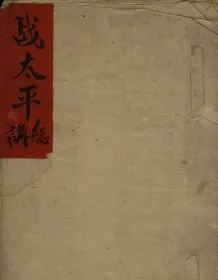 战太平
總講